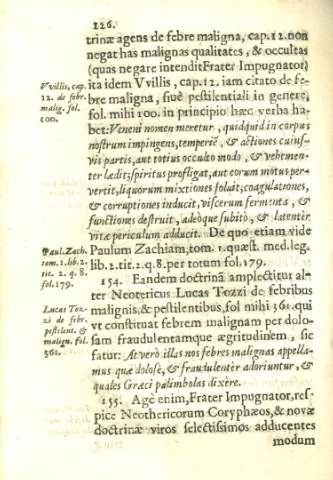 126.
trinæ agens de febre maligna, cap. 12. non
negat has malignas qualitates, & occultas
(quas negare intendit Frater Impugnator)
ita idem Vvillis, cap. 12. iam citato de fe-
bre maligna, siuè pestilentiali in genere,
fol. mihi 100. in principio hæc verba ha-
bet: Veneni nomen meretur, quidquid in corpus
nostrum impingens, temperiè, & actiones cuius-
vis partis, aut totius occulto modo, & vehemen-
ter lædit; spiritus profligat, aut eorum motus per-
vertit, liquorum mixtiones soluit; coagulationes,
& corruptiones inducit, viscerum fermenta, &
functiones destruit, adeòque subitò, & latenter
vitæ periculum adducit. De quo etiam vide
Paulum Zachiam, tom. 1. quæst. med. leg.
lib. 2. tit. 2. q. 8. per totum fol. 179.
154. Eandem doctrinã amplectitur al-
ter Neotericus Lucas Tozzi de febribus
malignis, & pestilentibus, fol mihi 361. qui
vt constituat febrem malignam per dolo-
sam fraudulentamque ægritudinem, sic
fatur: At verò illas nos febres malignas appella-
mus quæ dolosè, & fraudulentèr adoriuntur, &
quales Græci palimbolas dixère.
155. Age enim, Frater Impugnator, res-
pice Neothericorum Coryphæos, & novæ
doctrinæ viros selectissimos adducentes
modum
Vvillis, cap.
12. de febr.
malig. fol.
100.
Paul. Zach.
tom. 1. lib. 2.
tit. 2. q. 8.
fol. 179.
Lucas Toz-
zi de febr.
pestilent. &
malign. fol.
361.